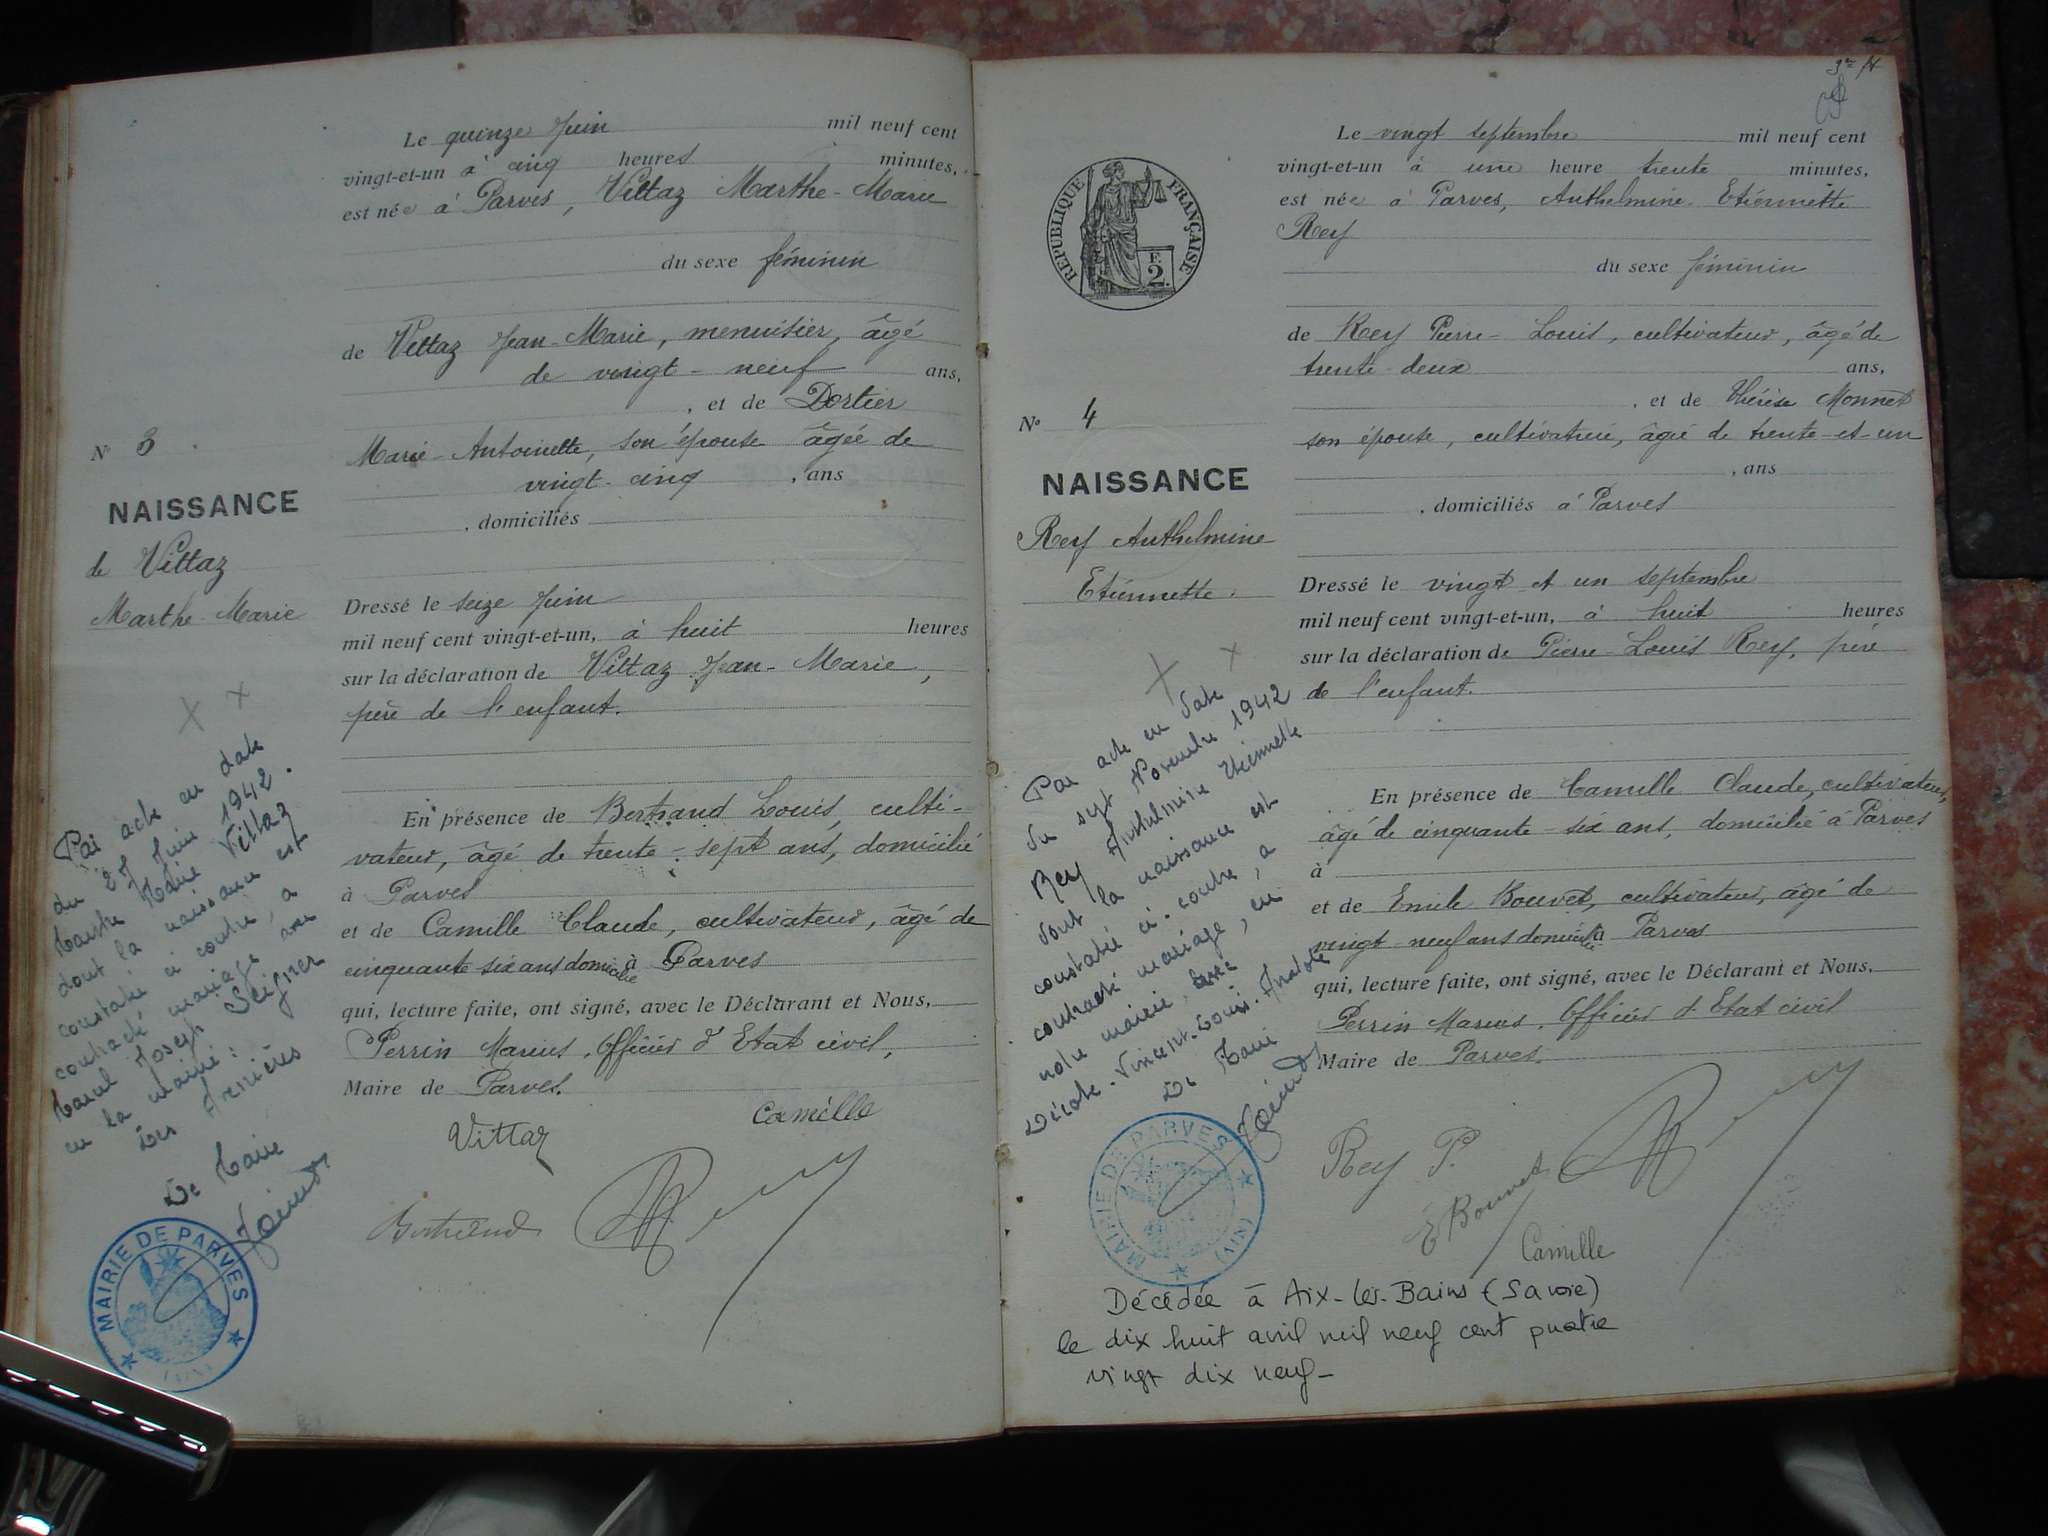 Le quinze Juin mil neuf cent
vingt-et-un à cinq heures minutes,
est née à Parves, Vittaz Marthe-Marie
du sexe féminin
de Vittaz Jean-Marie, menuisier, âgé
de vingt-neuf ans,
, et de Dortier
Marie-Antoinette, son épouse âgée de
vingt-cinq , ans
, domiciliés
N° 3
NAISSANCE
de Vittaz
Marthe-Marie
Dressé le seize Juin
mil neuf cent vingt-et-un, à huit heures
sur la déclaration de Vittaz Jean-Marie,
père de l'enfant.
En présence de Bertrand Louis, culti-
vateur, âgé de trente-sept ans, domicilié
à Parves
et de Camille Claude, cultivateur, âgé de
cinquante six ans domicilié à Parves
qui, lecture faite, ont signé, avec le Déclarant et Nous,
Perrin Marius, Officier d'Etat civil,
Maire de Parves.
Vittaz
Camille
Bertrand
Par acte en date
du 27 Juin 1942.
Marthe Marie Vittaz
dont la naissance est
constatée ci contre, a
contracté mariage avec
Marcel Joseph Seigner
en la mairie:
Des
Le Maire
MAIRIE DE PARVES
(AIN)
3me
REPUBLIQUE FRANÇAISE
F.
2.
Le vingt septembre mil neuf cent
vingt-et-un à une heure trente minutes,
est née à Parves, Anthelmine Etiennette
Rey
du sexe féminin
de Rey Pierre-Louis, cultivateur, âgé de
trente-deux ans,
, et de Thérèse Monnet
son épouse, cultivatrice, âgée de trente-et-un
, ans
, domiciliés à Parves
N° 4
NAISSANCE
Rey Anthelmine
Etiennette
Dressé le vingt et un septembre
mil neuf cent vingt-et-un, à huit heures
sur la déclaration de Pierre-Louis Rey, père
de l'enfant.
En présence de Camille Claude, cultivateur,
âgé de cinquante-six ans, domicilié à Parves
à
et de Emile Bouvet, cultivateur, âgé de
vingt-neuf ans domicilié à Parves
qui, lecture faite, ont signé, avec le Déclarant et Nous,
Perrin Marius, Officier d'Etat civil
Maire de Parves.
Rey P.
E Bouvet
Camille
Par acte en date
du sept Novembre 1942
Rey Anthelmine Etiennette
dont la naissance est
constatée ci-contre, a
contracté mariage, en
notre mairie, avec
Vincent-Louis-Anatole
Le Maire
MAIRIE DE PARVES
(AIN)
Décédée à Aix-les-Bains (Savoie)
le dix huit avril mil neuf cent quatre
vingt dix neuf-